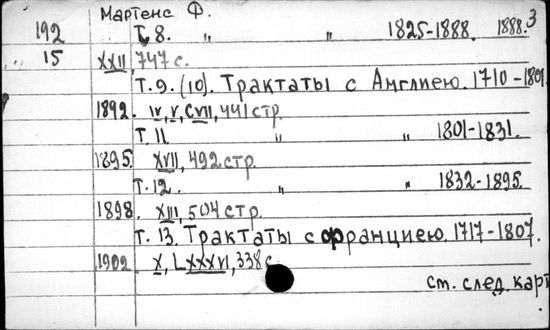 Мартенс Ф. 3
192 Т. 8. " " 1825-1888. 1888.
15 XXII 747 с.
Т. 9. (10). Трактаты с Англиею. 1710-1801
1892. IV, V, CVII, 441 стр.
Т. 11 " " 1801-1831.
1895. XVII, 492 стр.
Т. 12. " " 1832-1895.
1898. XIII, 504 стр.
Т. 13. Трактаты с Франциею. 1717-1807.
1902 X, LXXXVI, 338 с
см. след. карт